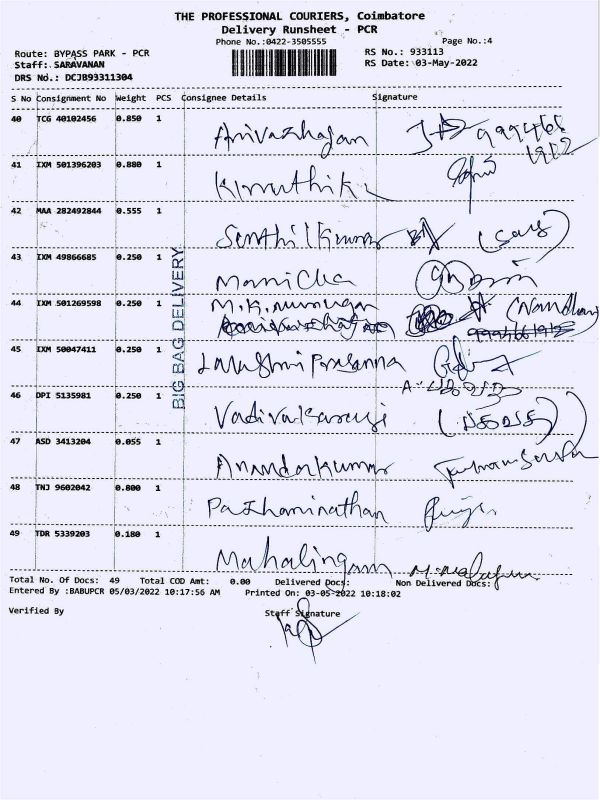 THE PROFESSIONAL COURIERS, Coimbatore
Delivery Runsheet - PCR
Phone No.:0422-3505555
Page No.:4
Route: BYPASS PARK - PCR
RS No.: 933113
Staff: SARAVANAN
RS Date: 03-May-2022
DRS No.: DCJB93311304
S No Consignment No Weight PCS Consignee Details Signature
40 TCG 40102456 0.850 1 Arivazhagan
41 IXM 501396203 0.880 1 Kiruthika
42 MAA 282492844 0.555 1 Senthil Kumar
43 IXM 49866685 0.250 1
44 IXM 501269598 0.250 1 M.K. Murugan (Nandhan)
45 IXM 50047411 0.250 1 Lakshmi Prasanna
46 DPI 5135981 0.250 1
47 ASD 3413204 0.055 1 Anandakumar
48 TNJ 9602042 0.800 1 Pazhaninathan
49 TDR 5339203 0.180 1 Mahalingam
BIG BAG DELIVERY
Total No. Of Docs: 49 Total COD Amt: 0.00 Delivered Docs: Non Delivered Docs:
Entered By :BABUPCR 05/03/2022 10:17:56 AM Printed On: 03-05-2022 10:18:02
Verified By Staff Signature